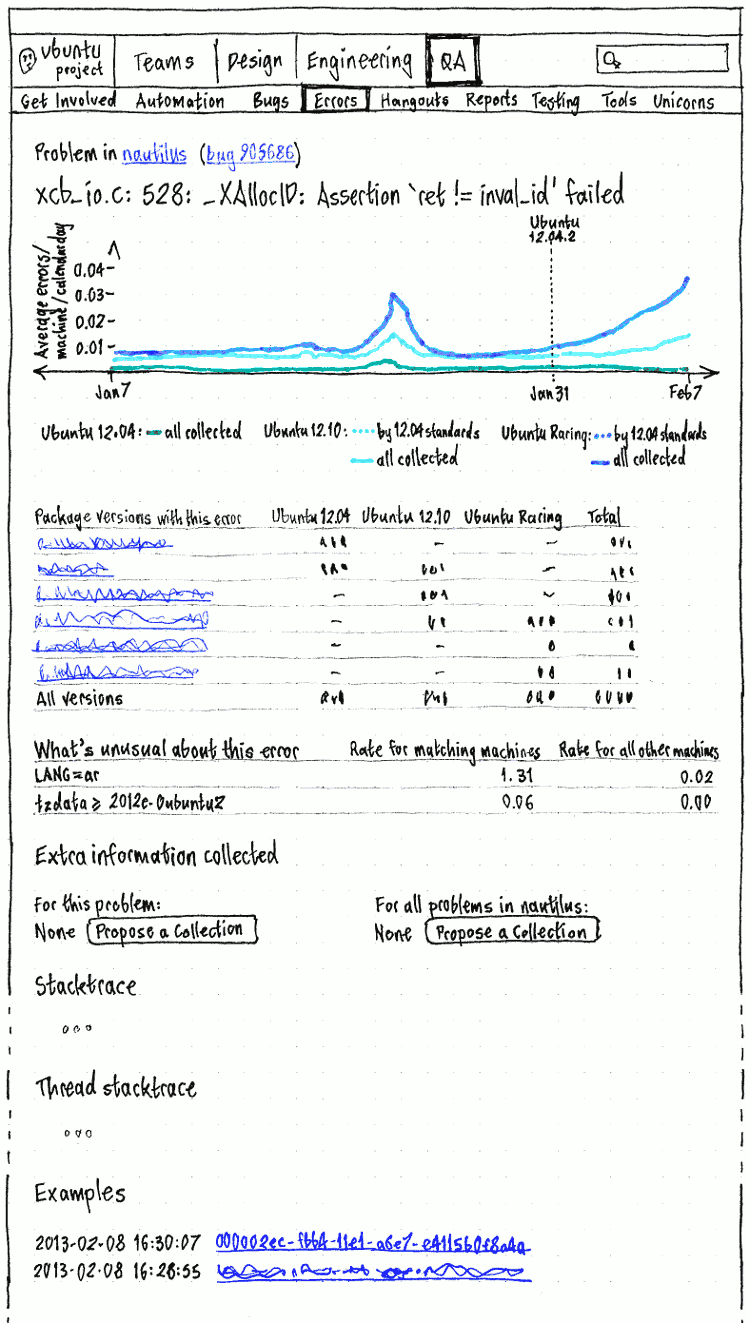 ubuntu project Teams Design Engineering QA
Get Involved Automation Bugs Errors Hangouts Reports Testing Tools Unicorns
Problem in nautilus (bug 905686)
xcb_io.c: 528: _XAllocID: Assertion `ret != inval_id' failed
Ubuntu
12.04.2
Average errors/
machine/calendar day
0.04
0.03
0.02
0.01
Jan 7 Jan 31 Feb 7
Ubuntu 12.04: all collected Ubuntu 12.10: by 12.04 standards Ubuntu Raring: by 12.04 standards
all collected all collected
Package versions with this error Ubuntu 12.04 Ubuntu 12.10 Ubuntu Raring Total
All versions
What's unusual about this error Rate for matching machines Rate for all other machines
LANG=ar 1.31 0.02
tzdata ≥ 2012e-0ubuntu2 0.06 0.00
Extra information collected
For this problem: For all problems in nautilus:
None Propose a Collection None Propose a Collection
Stacktrace
Thread stacktrace
Examples
2013-02-08 16:30:07 000002ec-fbb4-11e1-a6e7-e4115b0f8a4a
2013-02-08 16:28:55